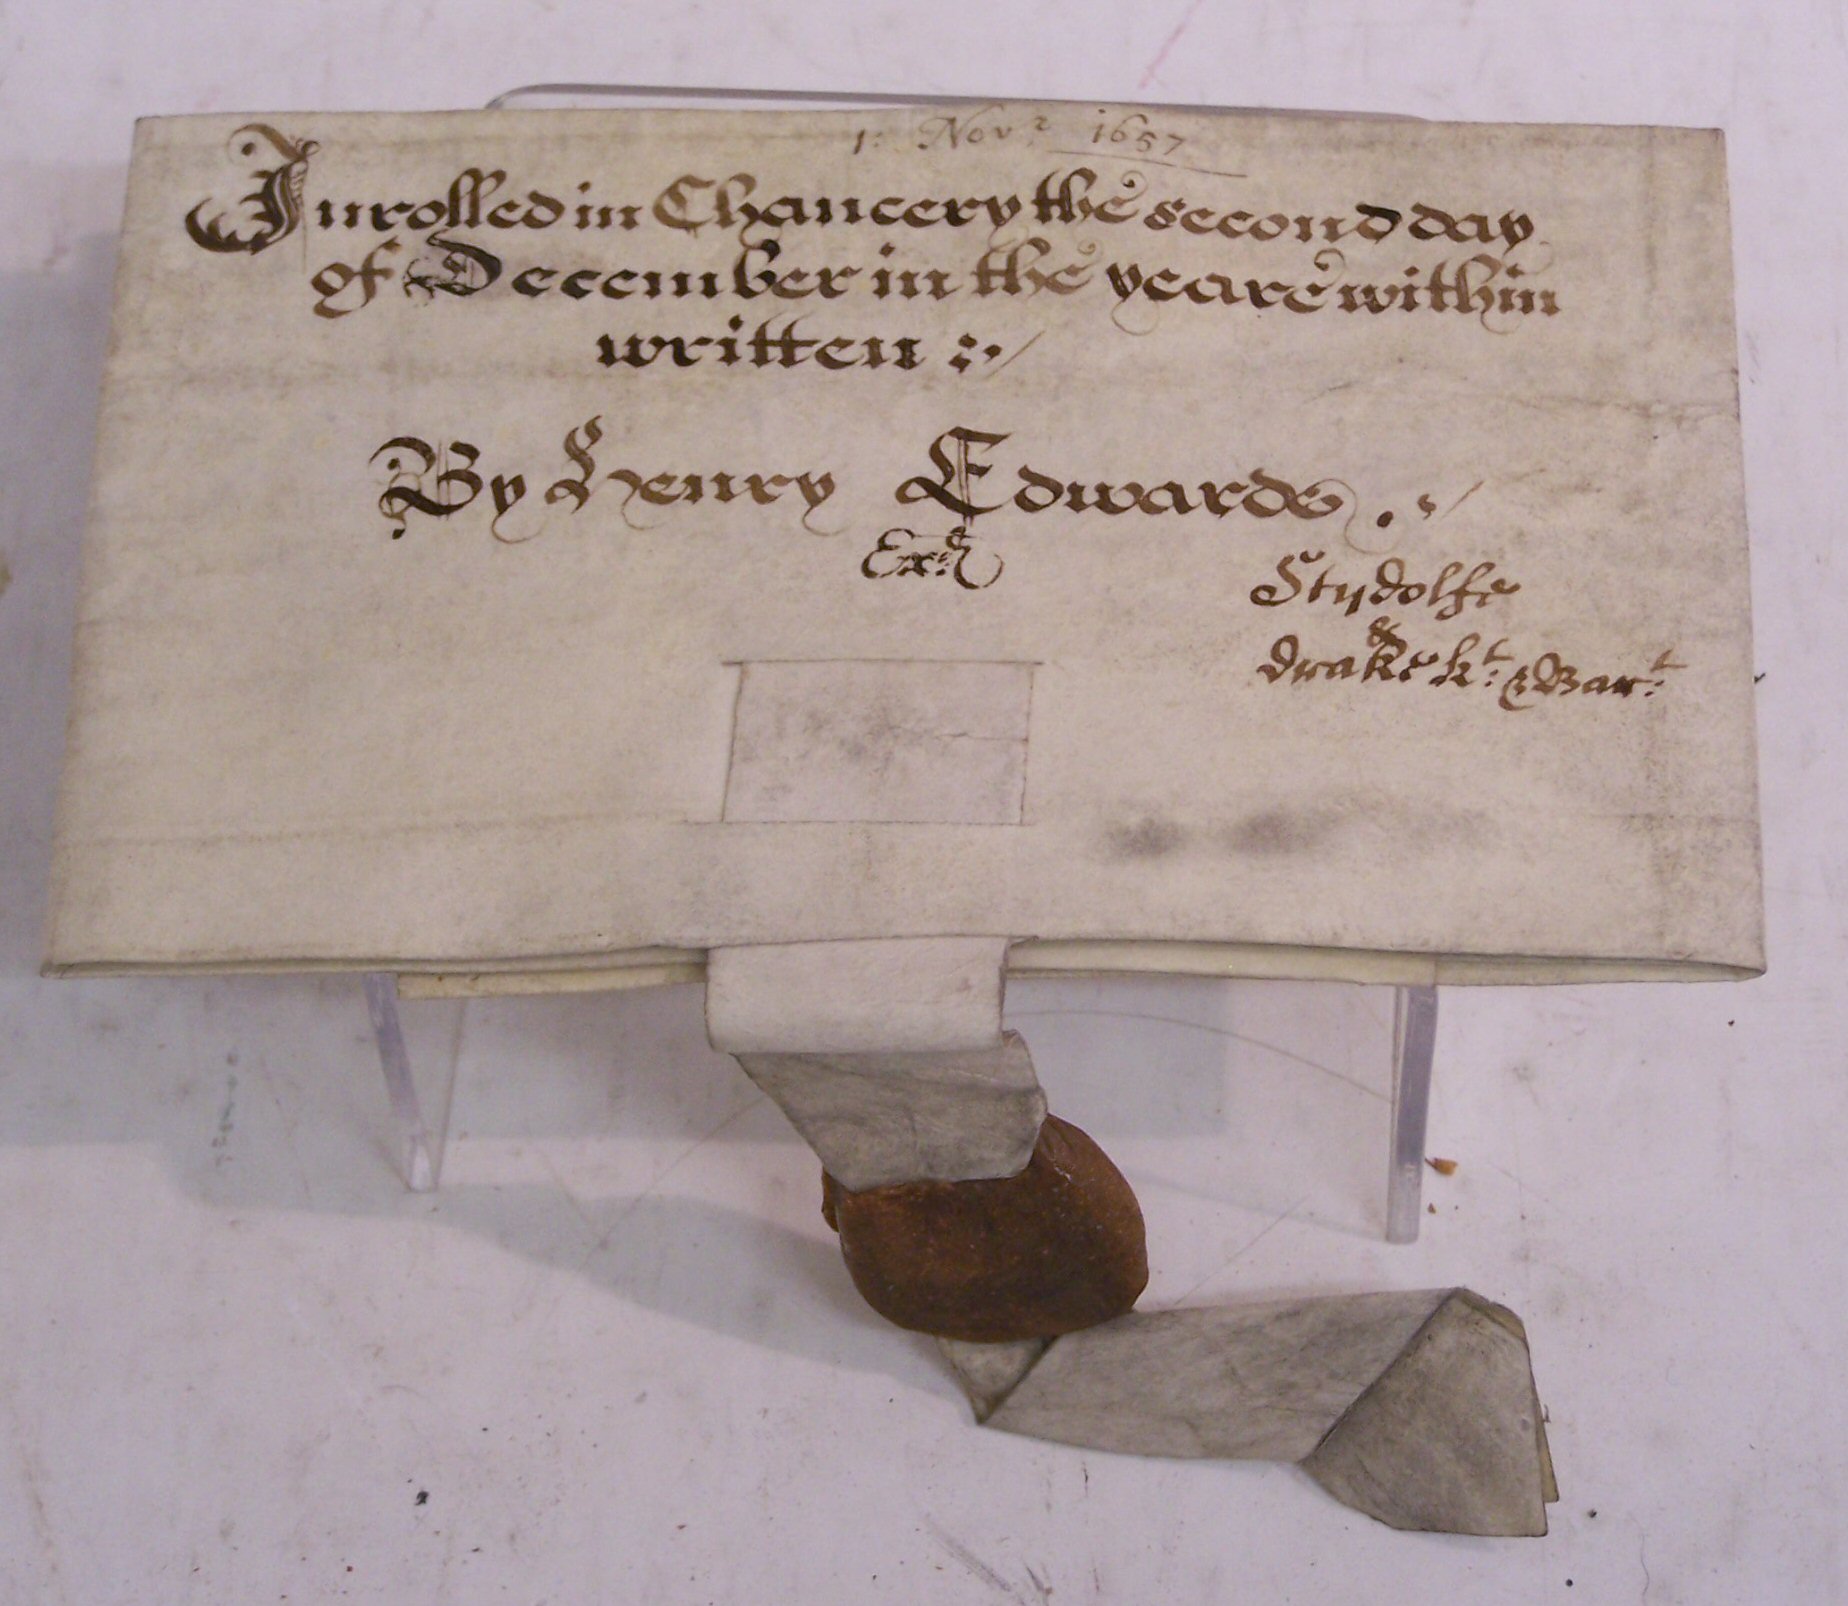 1: Novr 1657
Inrolled in Chancery the second day
of December in the yeare within
written :./
By Henry Edwards ./
Exr
Stydolfe
&
drake kt: & Bart: